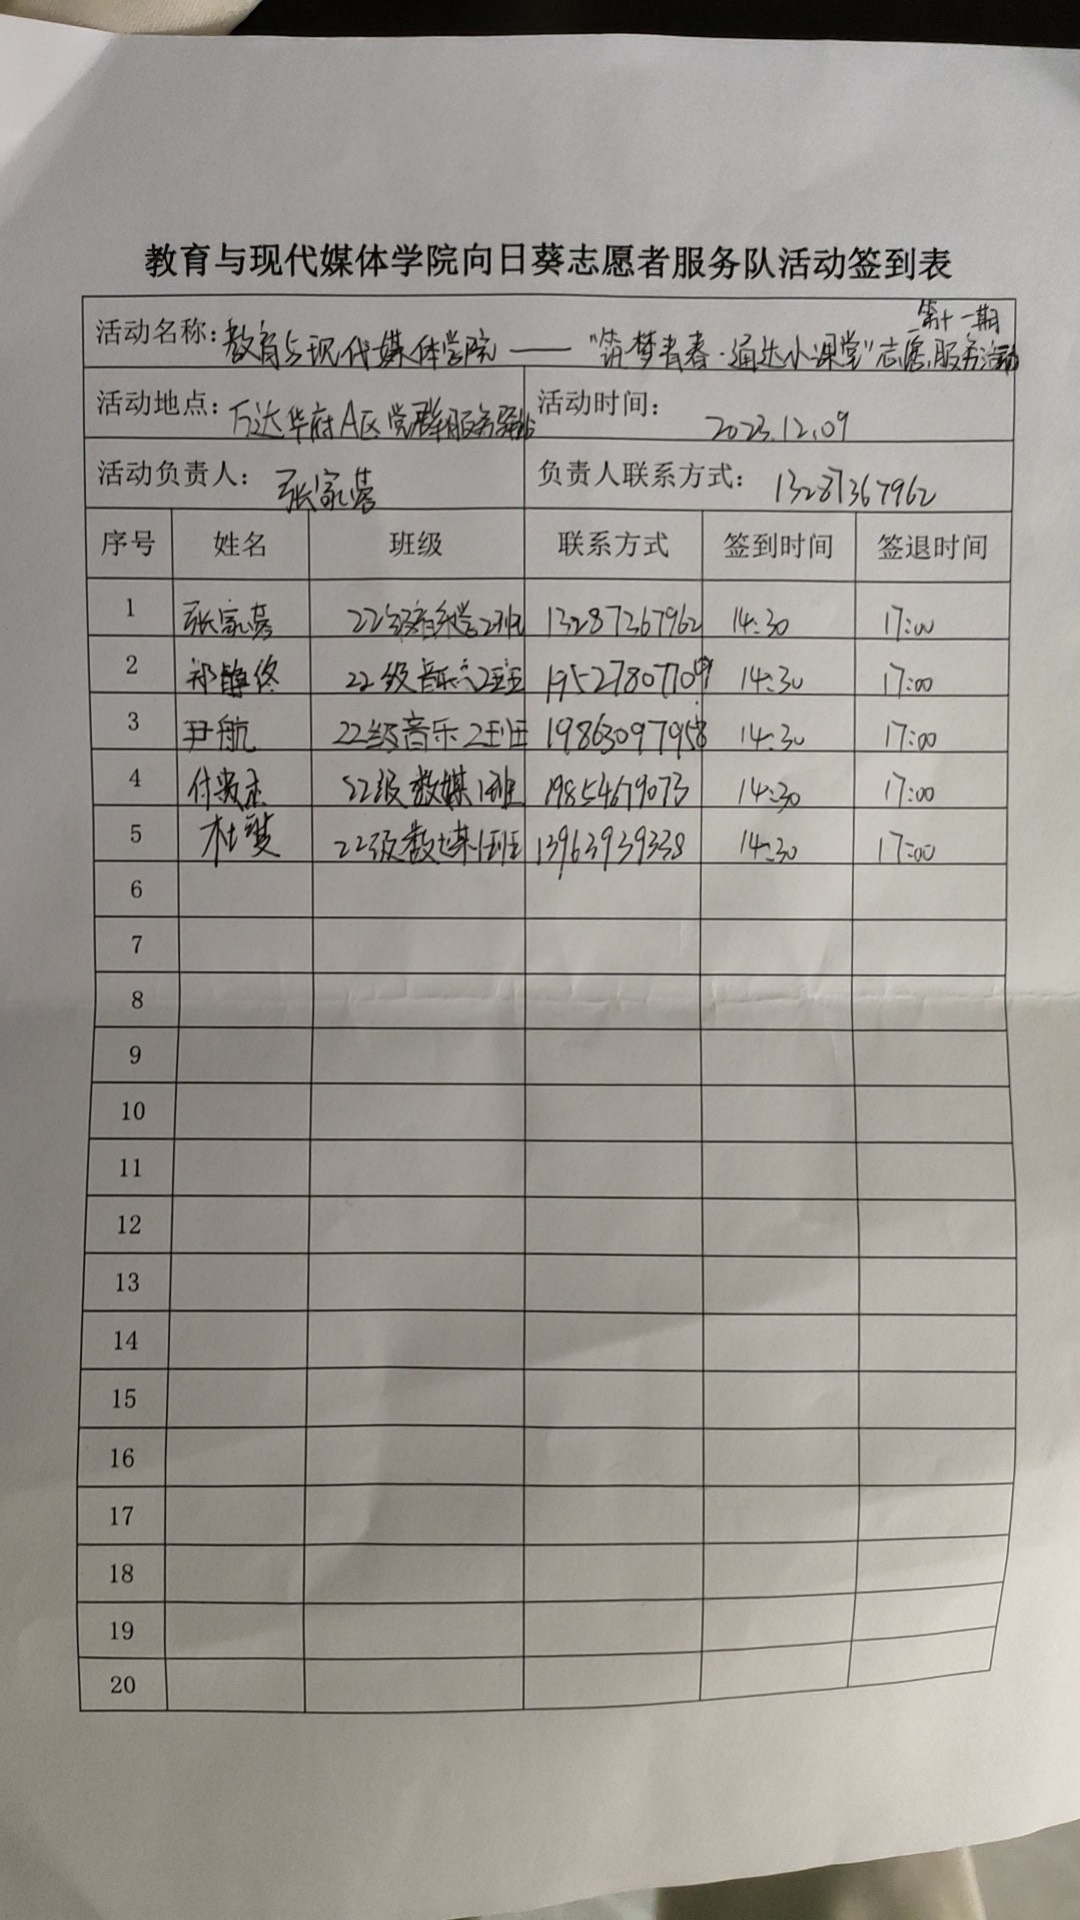 教育与现代媒体学院向日葵志愿者服务队活动签到表
第十一期
活动名称: 教育与现代媒体学院——"筑梦青春·通达小课堂"志愿服务活动
活动地点: 万达华府A区党群服务驿站 活动时间: 2023.12.09
活动负责人: 张家蓉 负责人联系方式: 13287367962
序号 姓名 班级 联系方式 签到时间 签退时间
1 张家蓉 22级 2班 13287367962 14:30 17:00
2 22级音乐2班 14:30 17:00
3 尹航 22级音乐2班 19863097958 14:30 17:00
4 付贵杰 22级数媒1班 19854679073 14:30 17:00
5 杜雯 22级数媒1班 13963939338 14:30 17:00
6
7
8
9
10
11
12
13
14
15
16
17
18
19
20